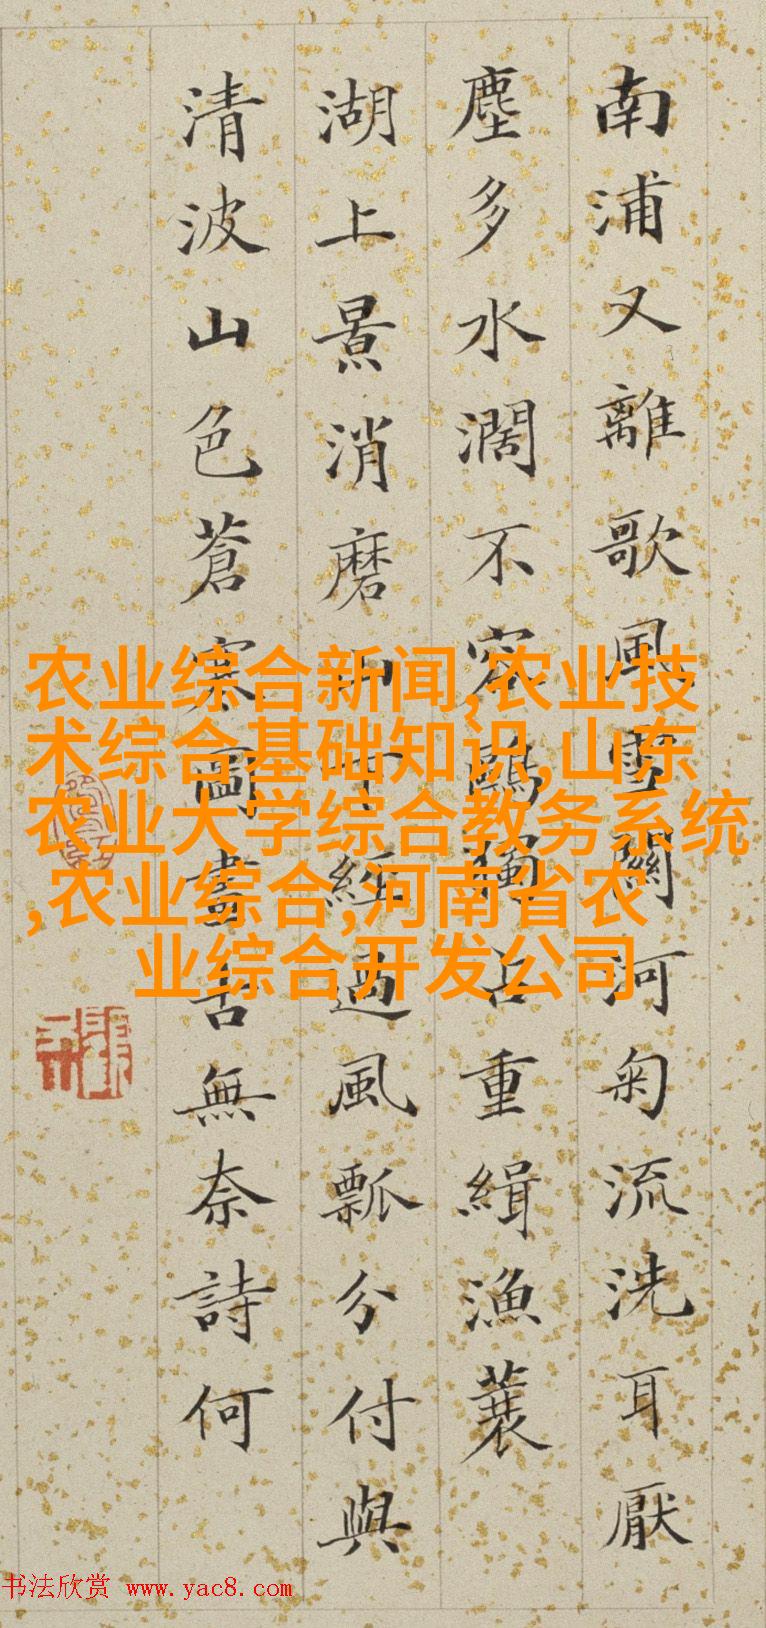 南浦又離歌風雪關河匊流洗耳厭
塵多水濶不容鷗獨占重緝漁蓑
湖上景消磨山下經過風瓢分付與
清波山色蒼寒圖畫古無奈詩何
农业综合新闻,农业技
术综合基础知识,山东
农业大学综合教务系统
,农业综合,河南省农
业综合开发公司
书法欣赏 www.yac8.com